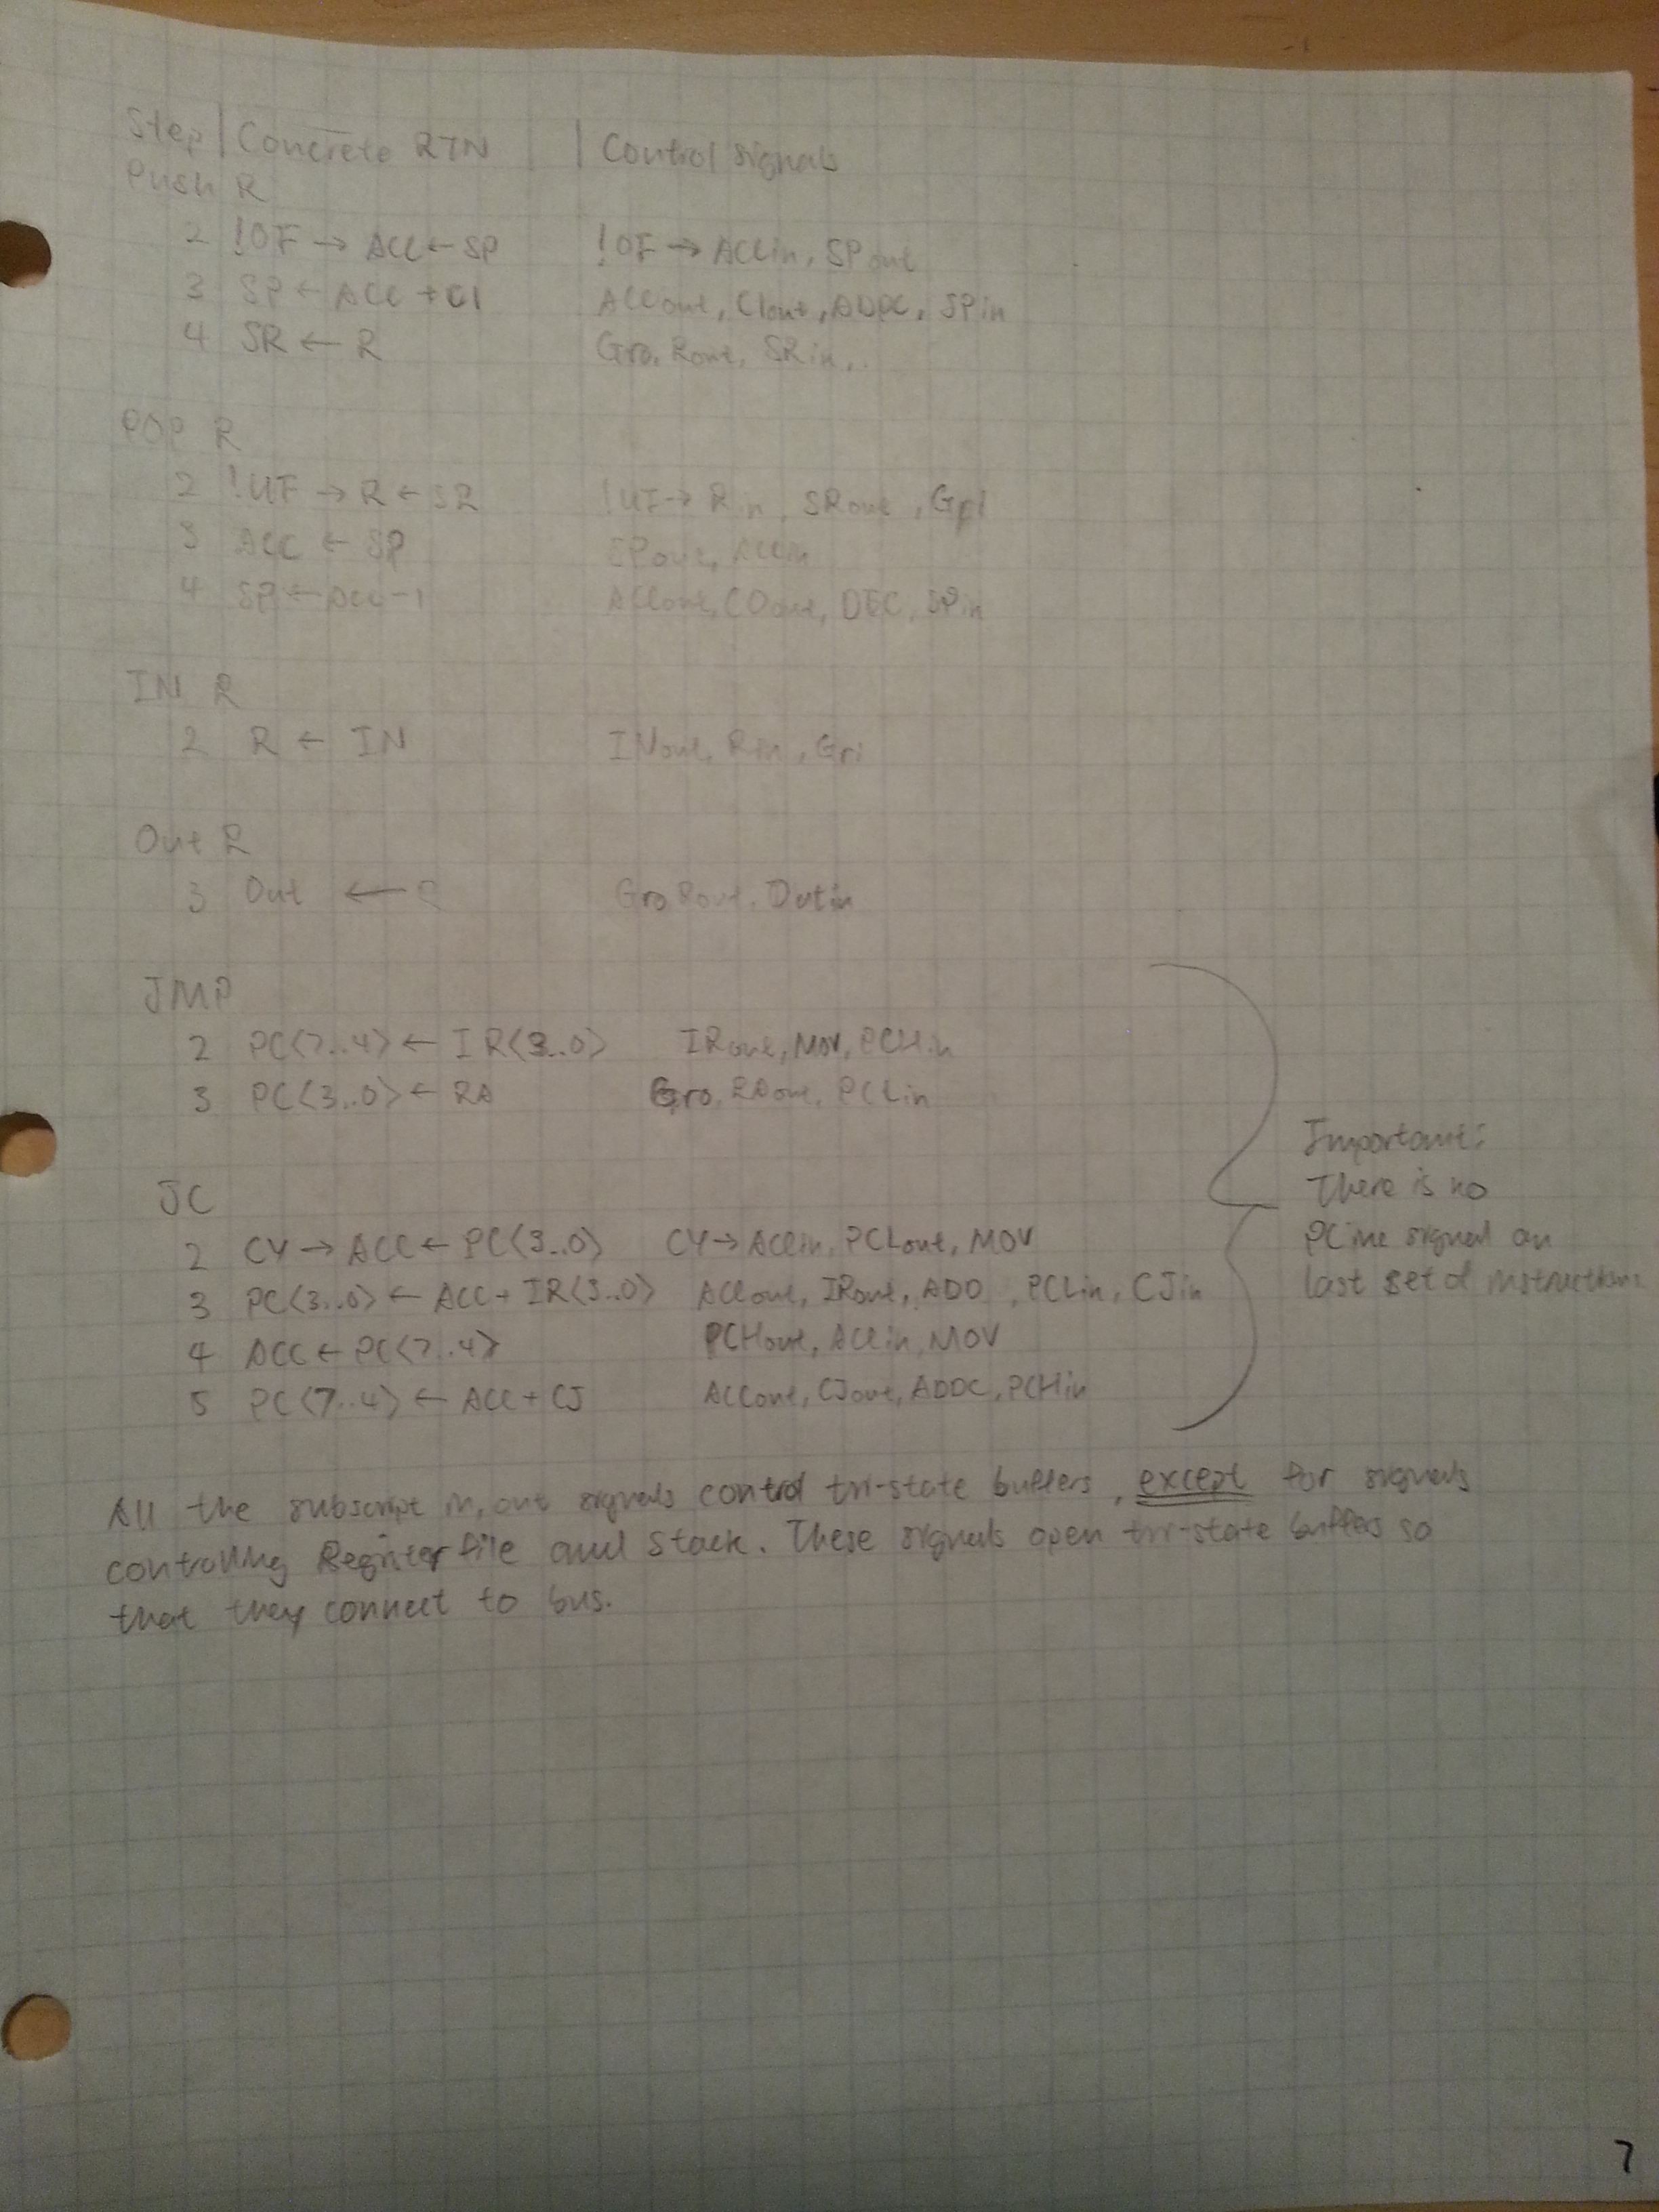 Step | Concrete RTN | Control signals
Push R
2 !OF → ACC ← SP !OF → ACCin, SPout
3 SP ← ACC + C1 ACCout, C1out, ADDC, SPin
4 SR ← R Gro, Rout, SRin,
POP R
2 !UF → R ← SR !UF → Rin, SRout, Gri
3 ACC ← SP SPout, ACCin
4 SP ← ACC-1 ACCout, C0out, DEC, SPin
IN R
2 R ← IN INout, Rin, Gri
Out R
3 Out ← R Gro, Rout, Outin
JMP
2 PC<7..4> ← IR<3..0> IRout, MOV, PCHin
3 PC<3..0> ← RA Gro, RAout, PCLin
JC
2 CY → ACC ← PC<3..0> CY → ACCin, PCLout, MOV
3 PC<3..0> ← ACC + IR<3..0> ACCout, IRout, ADD, PCLin, CJin
4 ACC ← PC<7..4> PCHout, ACCin, MOV
5 PC<7..4> ← ACC + CJ ACCout, CJout, ADDC, PCHin
Important:
There is no
PCinc signal on
last set of instructions
All the subscript in, out signals control tri-state buffers, except for signals
controlling Register file and Stack. These signals open tri-state buffers so
that they connect to bus.
7